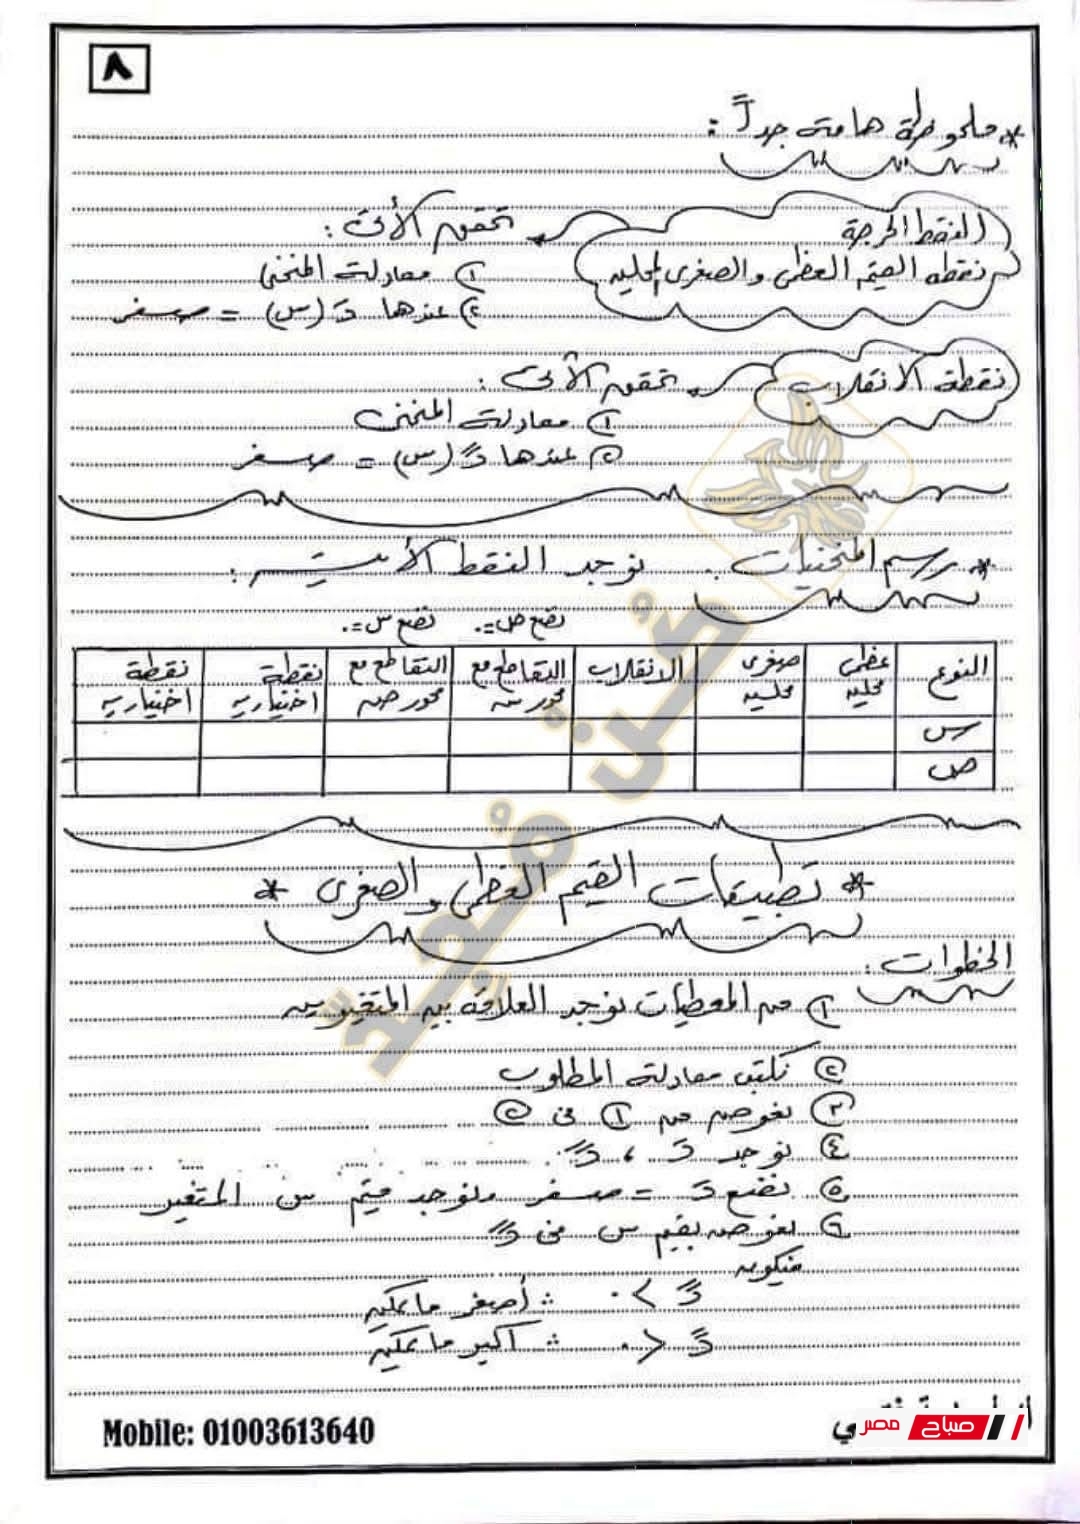 ٨
* ملحوظة هامة جداً :
النقط الحرجة
نقطه القيم العظمى والصغرى المحليه
تحقق الأتى :
١) معادلة المنحنى
٢) عندها دَ (س) = صفر
نقطة الانقلاب
تحقق الأتى :
١) معادلة المنحنى
٢) عندها دً (س) = صفر
* رسم المنحنيات : نوجد النقط الأتيه :
نضع ص=٠ نضع س=٠
النوع | عظمى محليه | صغرى محليه | الانقلاب | التقاطع مع محور س | التقاطع مع محور ص | نقطة اختياريه | نقطة اختياريه
س
ص
* تطبيقات القيم العظمى والصغرى *
الخطوات :
١) من المعطيات نوجد العلاقة بين المتغيرين
٢) نكتب معادلة المطلوب
٣) نعوض من ١ فى ٢
٤) نوجد دَ ، دً
٥) نضع دَ = صفر ونوجد قيم س المتغير
٦) نعوض بقيم س فى دً
فيكون
دً > ٠ ∴ أصغر ما يمكن
دً < ٠ ∴ أكبر ما يمكن
Mobile: 01003613640
صباح مصر